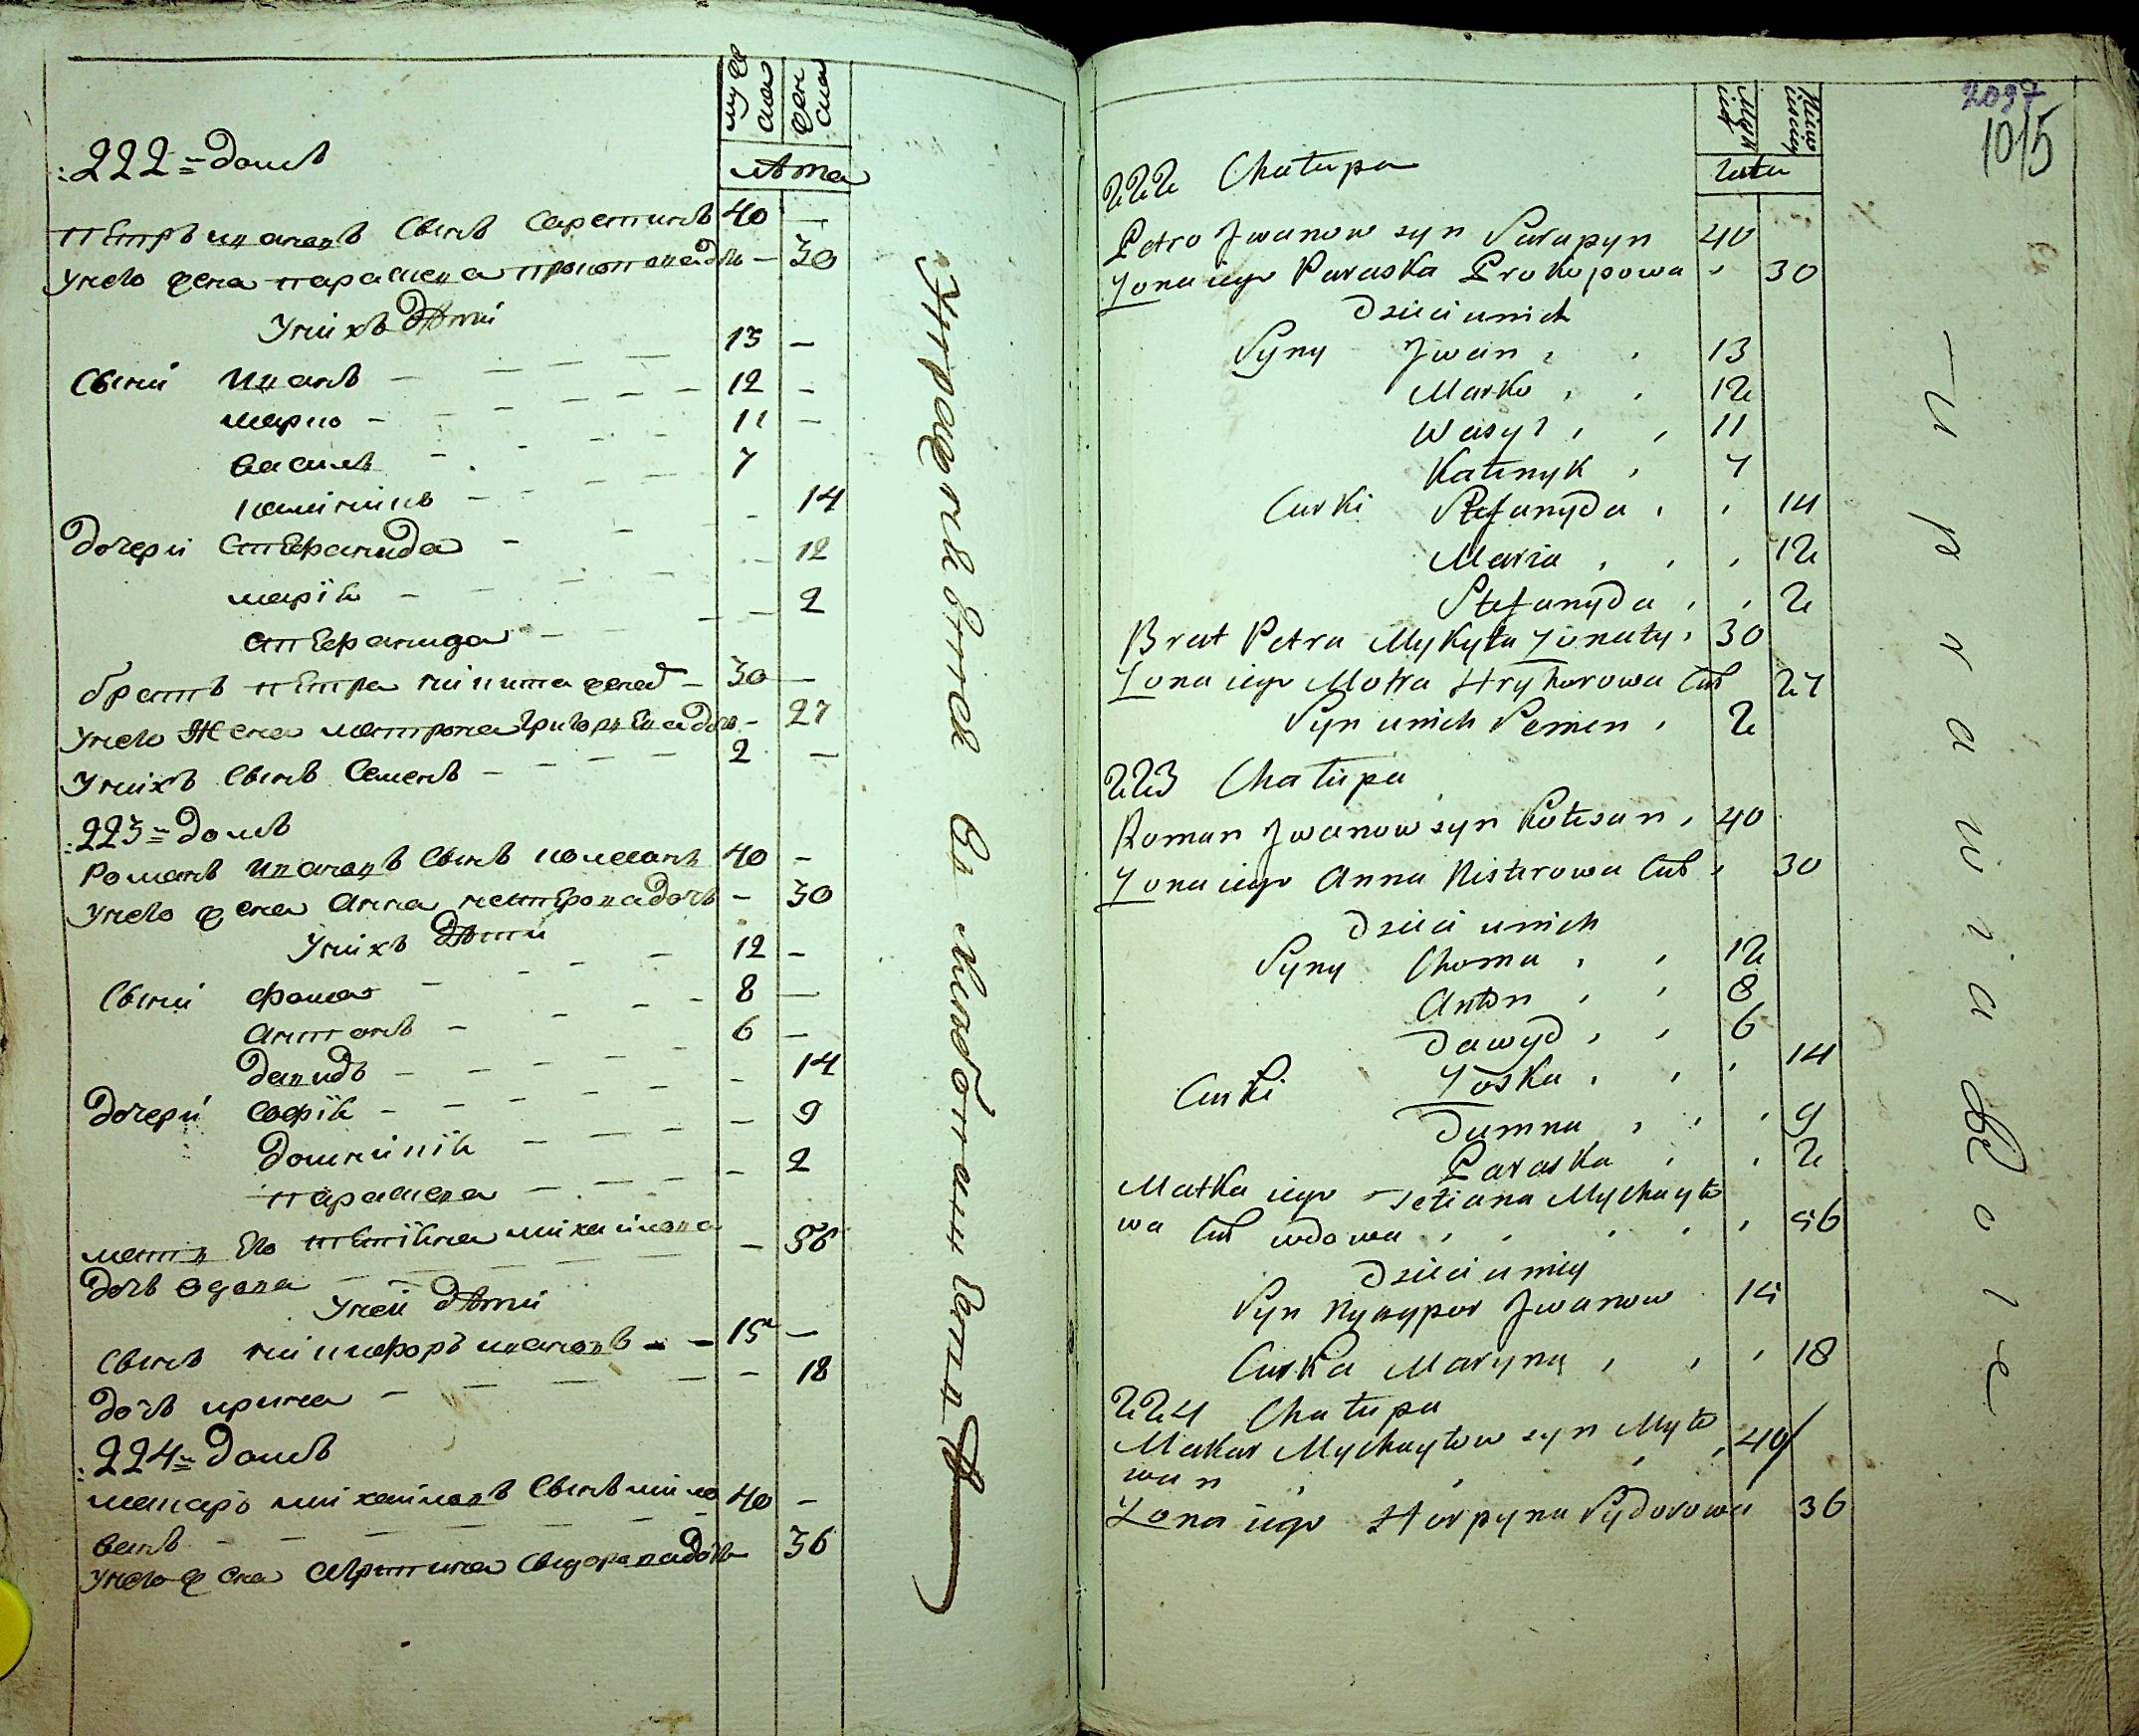 мужеска
женска
лѣта
:222=домъ
петръ ивановъ сынъ сарапинъ 40 —
Унего жена параскева прокоповадочь — 30
Унихъ дѣти
Сыни иванъ — 13 —
марко — 12 —
василь — 11 —
калѣникъ — 7
дочери стефанида — 14
марія — 12
стефанида — 2
братъ петра никита женат — 30 —
Унего жена матрона григорьевадочь — 27
Унихъ сынъ семенъ — 2 —
:223=домъ
романъ ивановъ сынъ колесанъ 40 —
Унего жена анна нестеровадочь — 30
Унихъ дѣти
Сыни фома — 12 —
антонъ — 8 —
давидъ — 6 —
дочери софія — 14
доминикія — 9
параскева — 2
мать его тетіяна михайлова
дочь вдова — 56
Уней дѣти
сынъ никифоръ ивановъ — 15 —
дочь ирина — 18
:224=домъ
макаръ михайловъ сынъ мило 40 —
ванъ
Унего жена агрипина сидоровадочь 36
Męzk
iich
iskich
Lata
2037
1015
222 Chałupa
Petro Jwanow syn Sarapyn 40
Zona iego Paraska Prokopowa 30
Dzieci unich
Syny Jwan 13
Marko 12
Wasyl 11
Kałenyk 7
Curki Stefanyda 14
Maria 12
Stefanyda 2
Brat Petra Mykyta Zonaty 30
Zona iego Motra Hryhorowa Cur 27
Syn unich Semen 2
223 Chałupa
Roman Jwanow syn Kolesan 40
Zona iego Anna Nisterowa Cur 30
Dzieci unich
Syny Choma 12
Anton 8
Dawyd 6
Curki Zoska 14
Dumna 9
Paraska 2
Matka iego Tetiana Mychayło
wa Cur wdowa 56
Dzieci uniey
Syn Nykypor Jwanow 15
Curka Maryna 18
224 Chałupa
Makar Mychayłow syn Myło 40
wan
Zona iego Horpyna Sydorowa 36